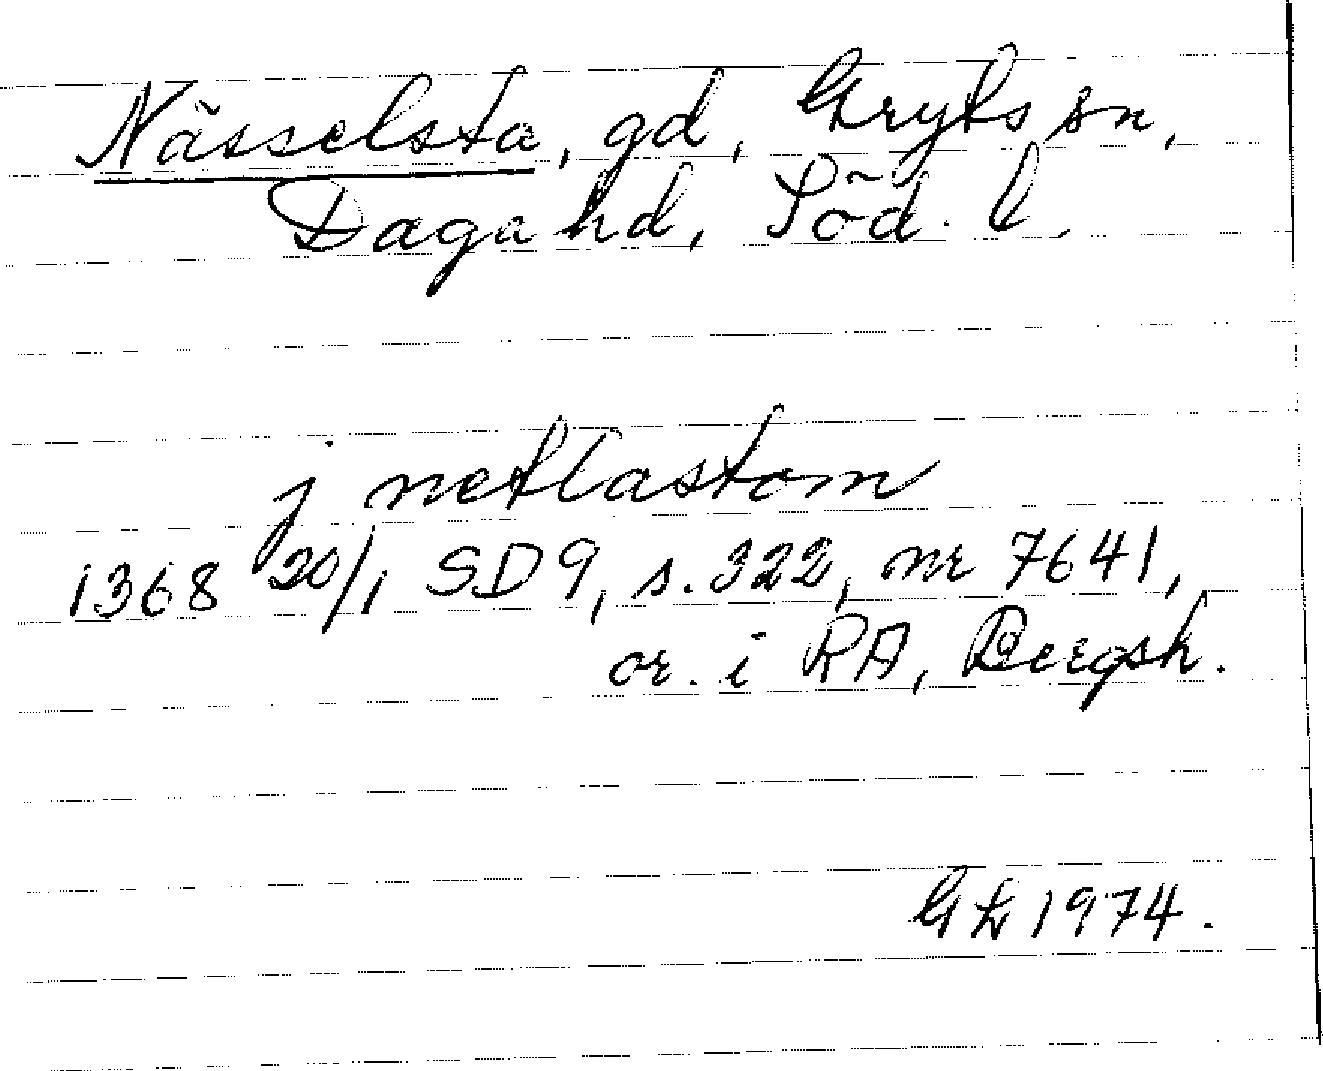 Nässelsta, gd, Gryts sn,
Daga hd, Söd. l.
j netlastom
1368 20/1 SD 9, s. 322, nr 7641,
or. i RA, Bergsh.
1974.